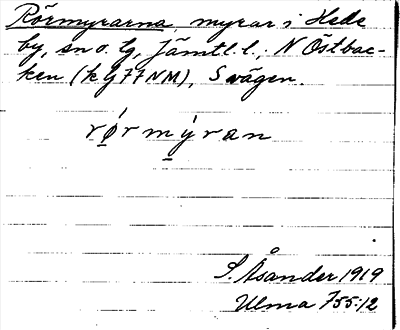 Rörmyrarna, myrar i Hede
by, sn o. lg, Jämtl. l., N Östbac-
ken (k G 77 NM), S vägen.
rǿ̱rmý̱ran
S. Åsander 1919
Ulma 755:12